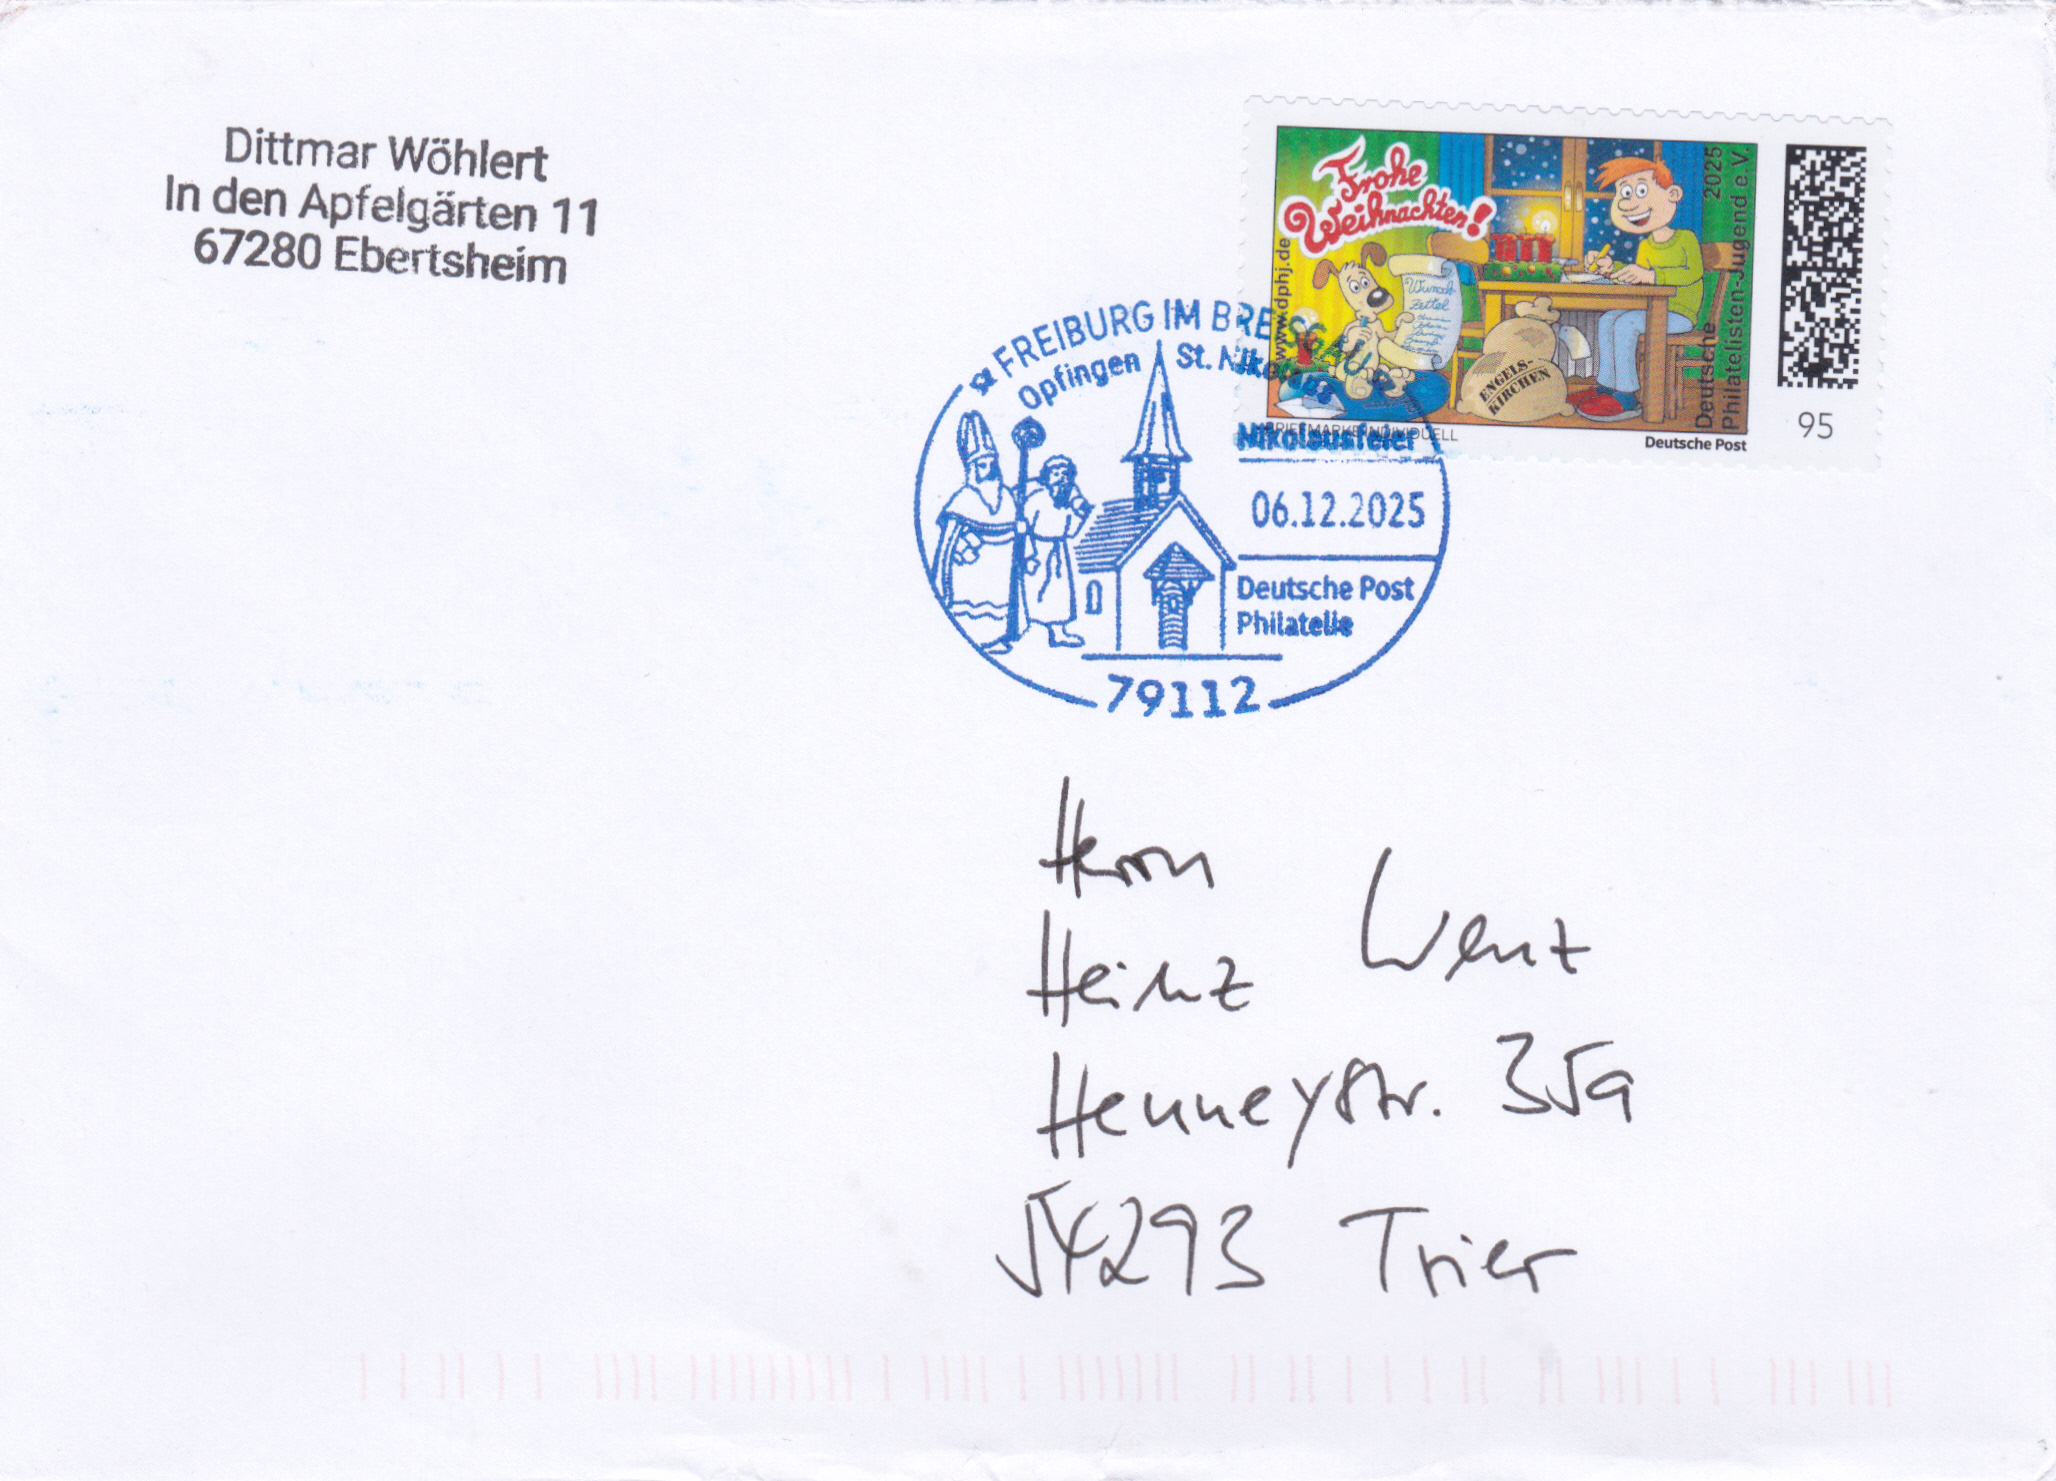 Dittmar Wöhlert
In den Apfelgärten 11
67280 Ebertsheim
Frohe
Weihnachten!
www.dphj.de
Wunsch-
Zettel
ENGELS-
KIRCHEN
Deutsche 2025
Philatelisten-Jugend e.V.
BRIEFMARKE INDIVIDUELL
Deutsche Post
95
FREIBURG IM BREISGAU
Opfingen St. Nikolaus
Nikolausfeier
06.12.2025
Deutsche Post
Philatelie
79112
Herrn
Heinz Wenz
Henneystr. 35a
54293 Trier